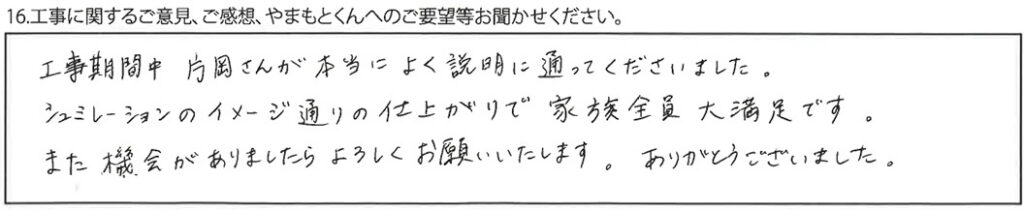 16.工事に関するご意見、ご感想、やまもとくんへのご要望等お聞かせください。
工事期間中 片岡さんが本当によく説明に通ってくださいました。
シュミレーションのイメージ通りの仕上がりで 家族全員 大満足です。
また機会がありましたらよろしくお願いいたします。ありがとうございました。